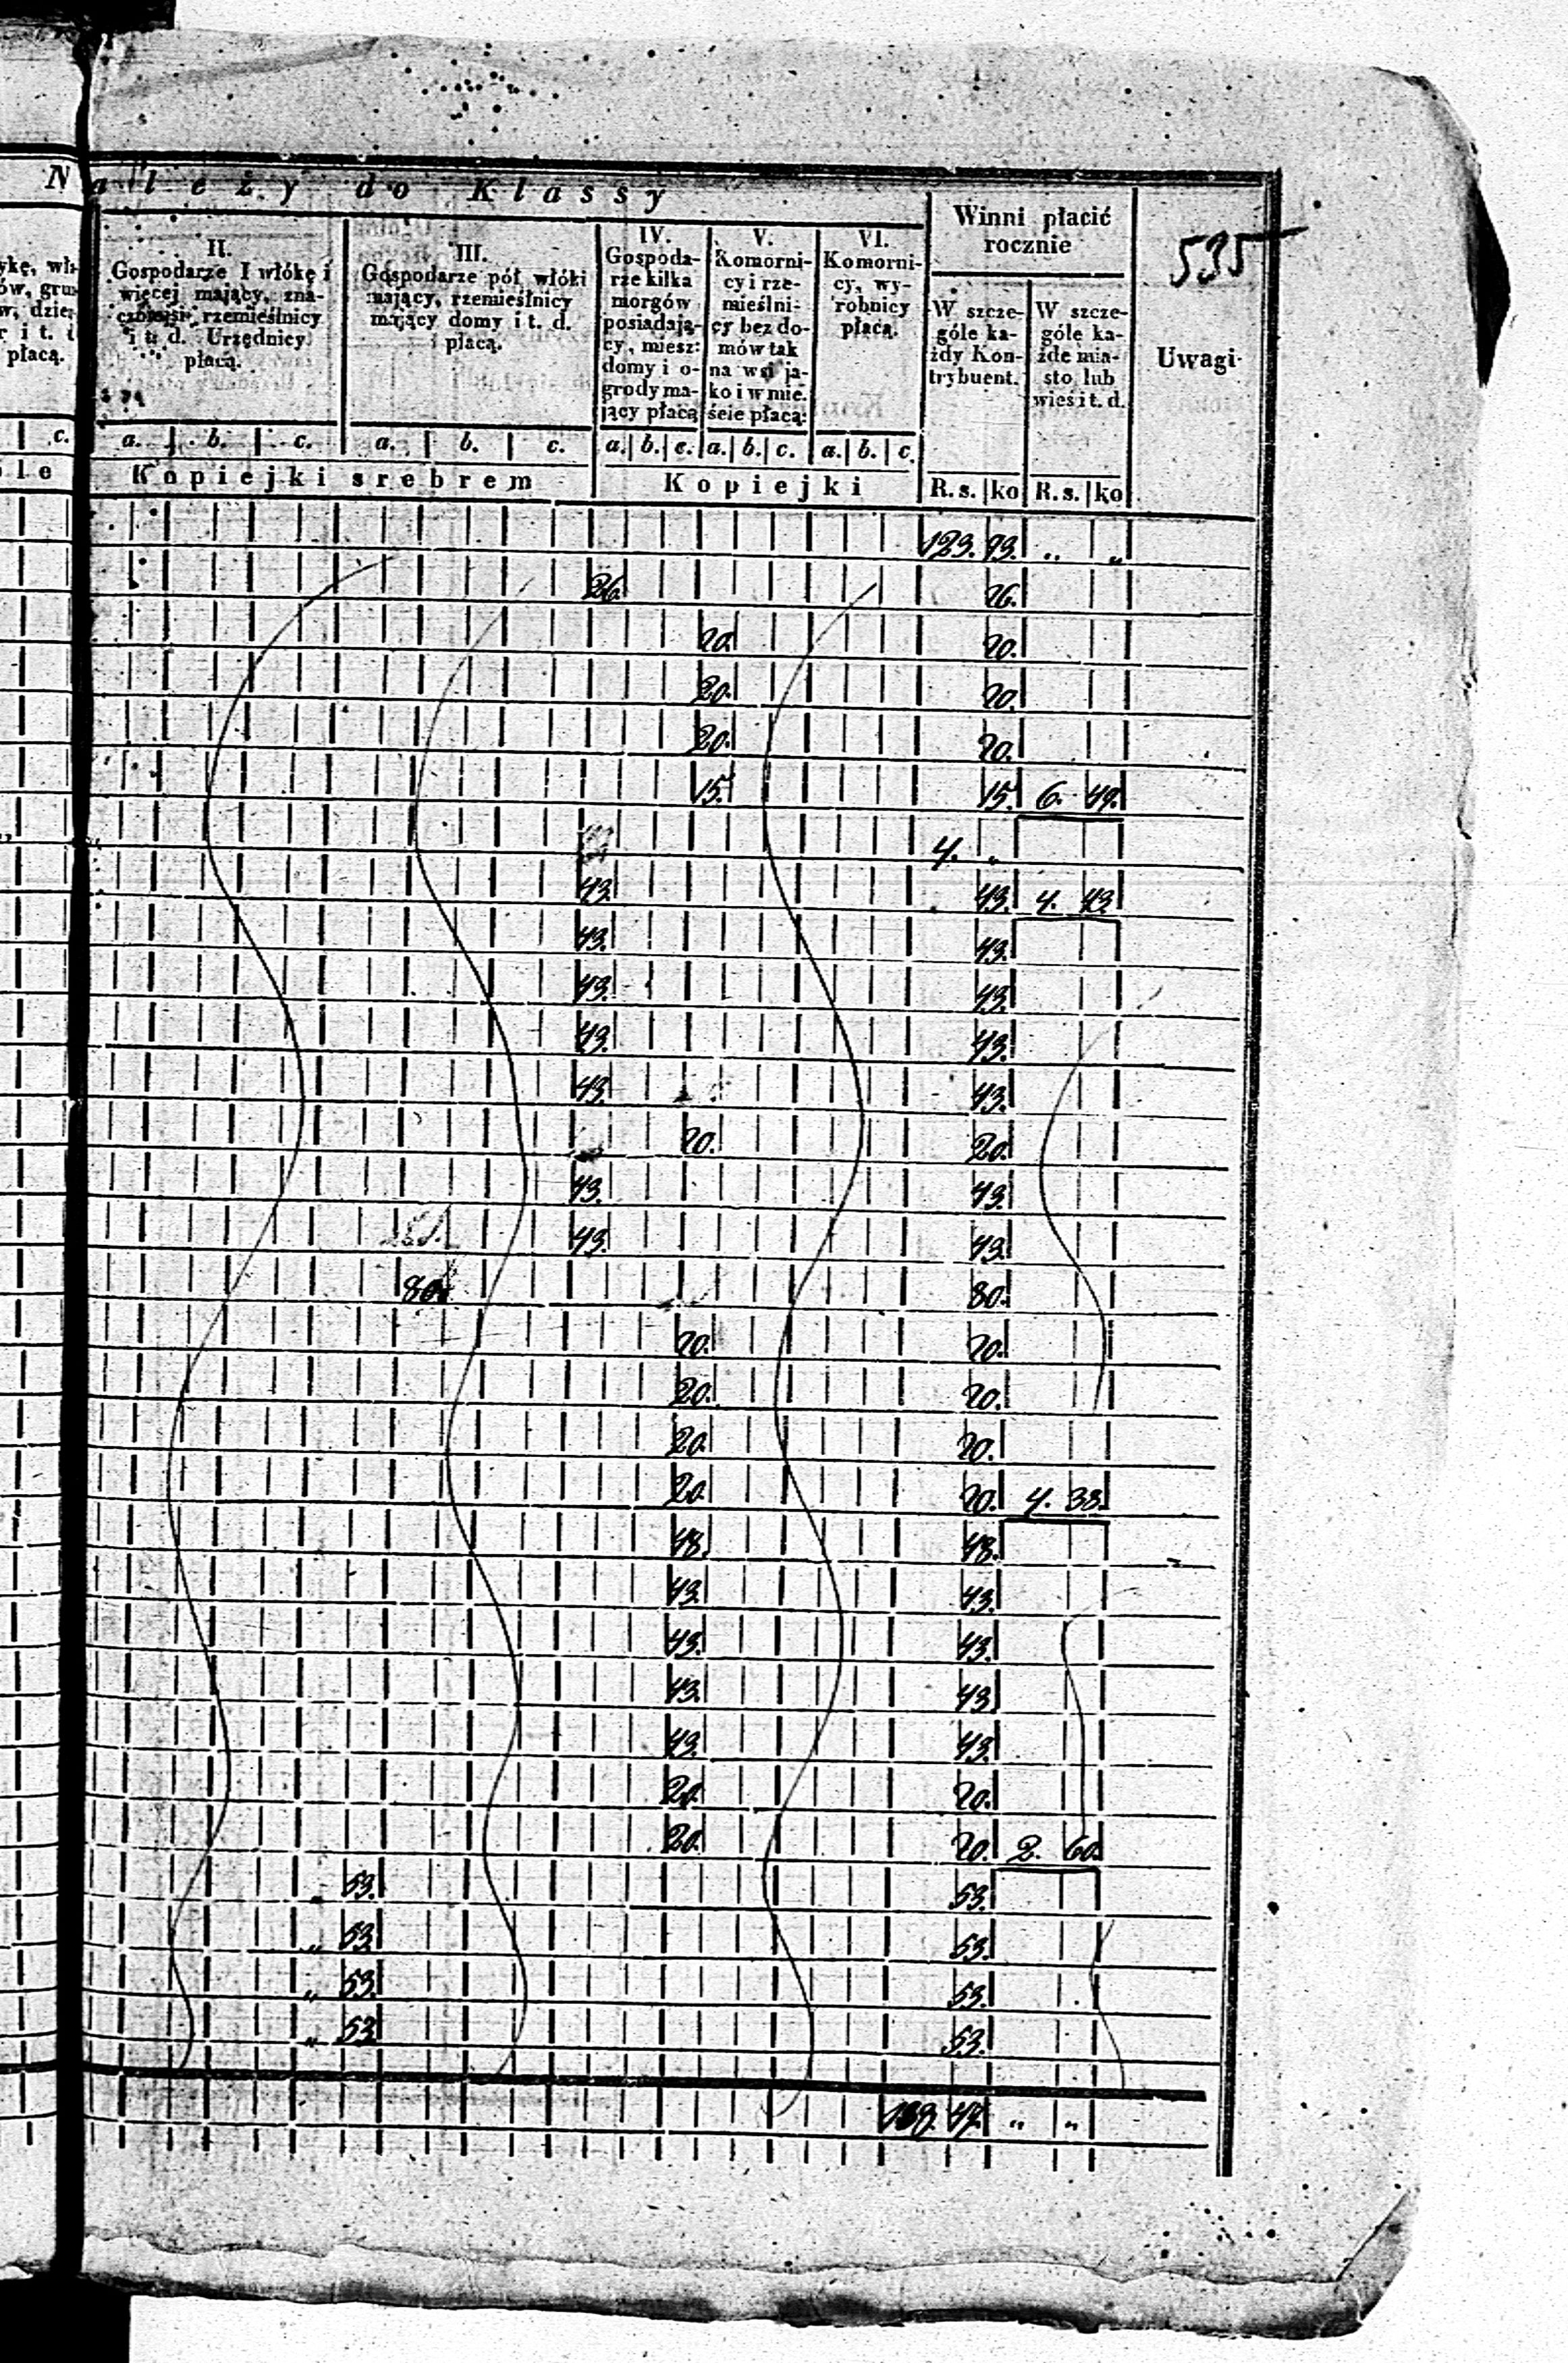 Należy do Klassy
535
ykę, wła-
ów, grun-
w, dzier-
r i t. d.
płacą.
c.
II.
Gospodarze I włókę i
więcej mający, zna-
czniejsi rzemieślnicy
i t. d. Urzędnicy
płacą.
III.
Gospodarze pół włóki
mający, rzemieślnicy
mający domy i t. d.
płacą.
IV.
Gospoda-
rze kilka
morgów
posiadają-
cy, miesz:
domy i o-
grody ma-
jący płacą
V.
Komorni-
cy i rze-
mieślni-
cy bez do-
mów tak
na wsi ja-
ko i w mie-
ście płacą:
VI.
Komorni-
cy, wy-
robnicy
płacą.
Winni płacić
rocznie
W szcze-
góle ka-
żdy Kon-
trybuent.
W szcze-
góle ka-
żde mia-
sto lub
wieś i t. d.
Uwagi
a. b. c. a. b. c. a. b. c. a. b. c. a. b. c.
Kopiejki srebrem Kopiejki R. s. ko R. s. ko
123. 93. „ „
26. 26.
20. 20.
20. 20.
20. 20.
15. 15. 6. 49.
4. „
43. 43. 4. 43.
43. 43.
43. 43.
43. 43.
43. 43.
20. 20.
43. 43.
43. 43.
80. 80.
20. 20.
20. 20.
20. 20.
20. 20. 4. 38.
48. 48.
43. 43.
43. 43.
43. 43.
43. 43.
20. 20.
20. 20. 2. 60.
53. 53.
„ 53. 53.
„ 53. 53.
„ 53. 53.
139. 47. „ „